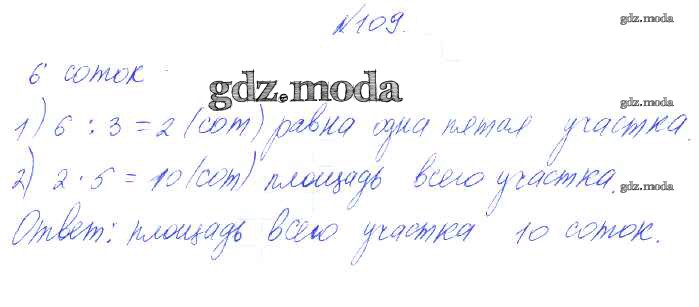 №109.
gdz.moda
6 соток
gdz.moda
gdz.moda
1) 6 : 3 = 2 (сот) равна одна пятая участка.
2) 2 · 5 = 10 (сот) площадь всего участка.
gdz.moda
Ответ: площадь всего участка 10 соток.